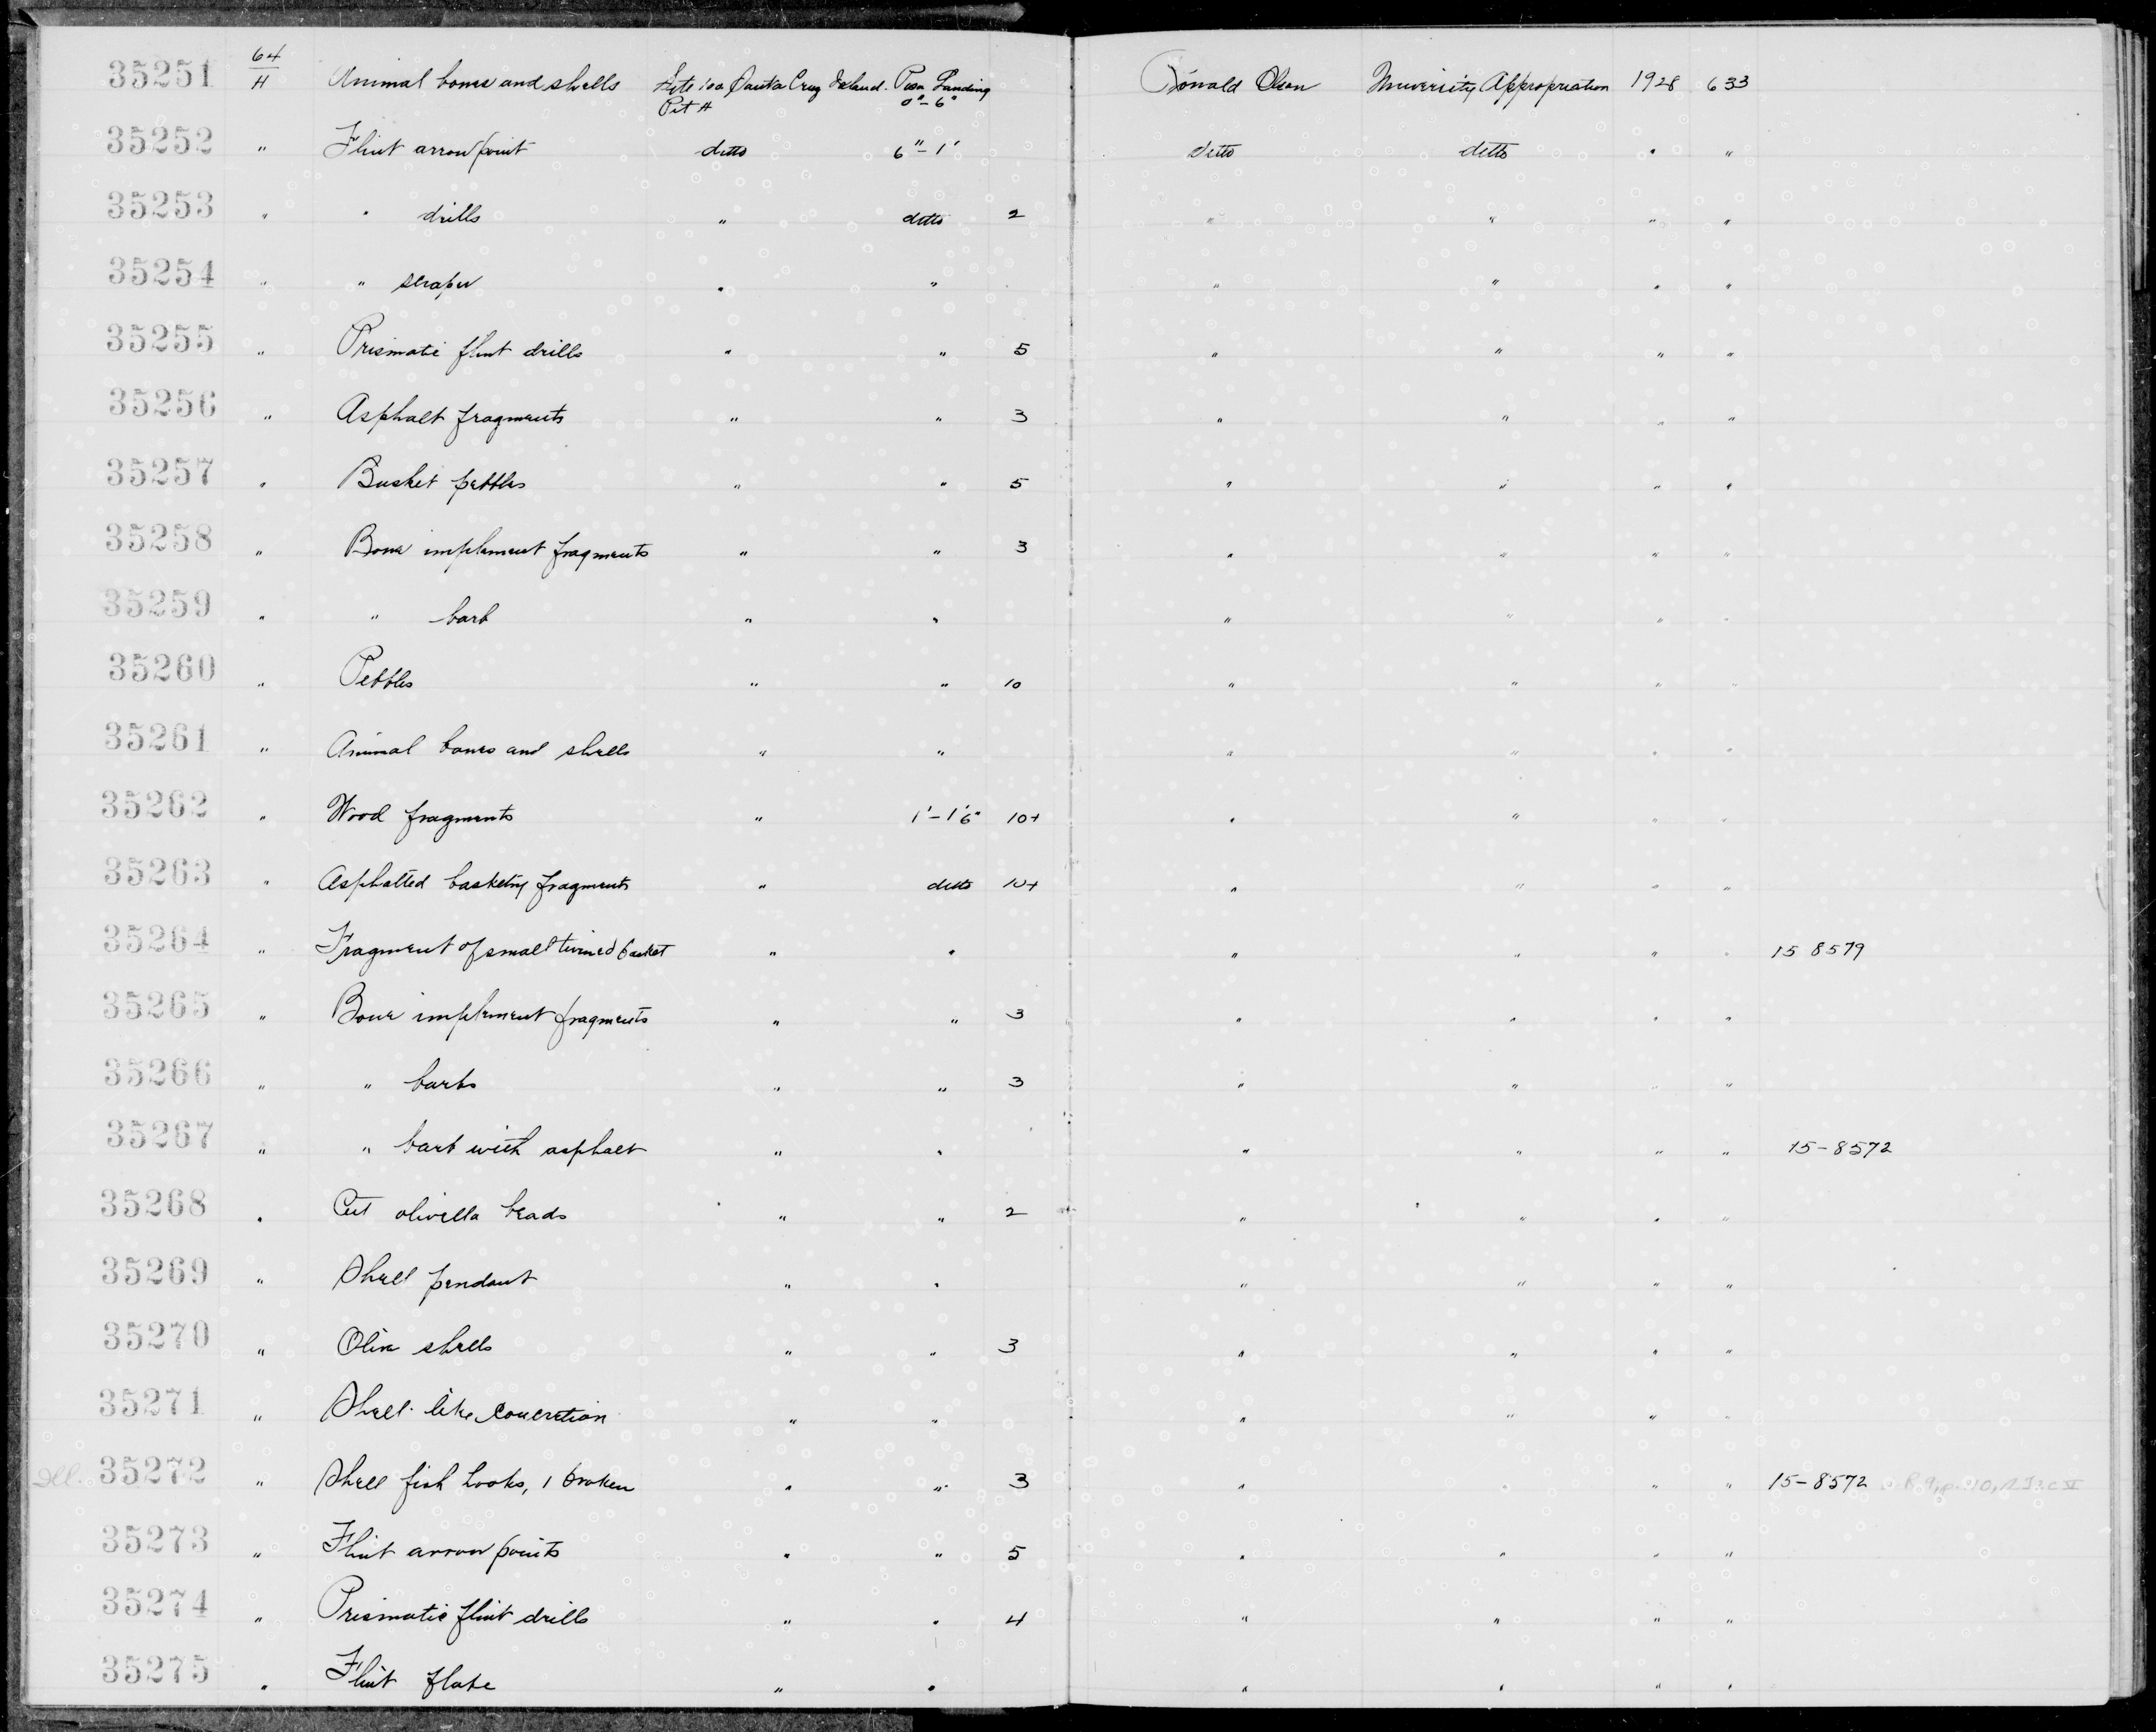 35251 64/H Animal bones and shells Site 100 Santa Cruz Island. Posa Landing Donald Olson University Appropriation 1928 633
Pit H 0"-6"
35252 " Flint arrow point ditto 6"-1' ditto ditto " "
35253 " " drills " ditto 2 " " " "
35254 " " scraper " " " " " "
35255 " Prismatic flint drills " " 5 " " " "
35256 " Asphalt fragments " " 3 " " " "
35257 " Basket pebbles " " 5 " " " "
35258 " Bone implement fragments " " 3 " " " "
35259 " " barb " " " " " "
35260 " Pebbles " " 10 " " " "
35261 " Animal bones and shells " " " " " "
35262 " Wood fragments " 1'-1'6" 10+ " " " "
35263 " Asphalted basketry fragments " ditto 10+ " " " "
35264 " Fragment of small twined basket " " " " " " 15 8579
35265 " Bone implement fragments " " 3 " " " "
35266 " " barbs " " 3 " " " "
35267 " " barb with asphalt " " " " " " 15-8572
35268 " Cut olivella beads " " 2 " " " "
35269 " Shell pendant " " " " " "
35270 " Oliva shells " " 3 " " " "
35271 " Shell-like concretion " " " " " "
Ill. 35272 " Shell fish hooks, 1 broken " " 3 " " " " 15-8572
35273 " Flint arrow points " " 5 " " " "
35274 " Prismatic flint drills " " 4 " " " "
35275 " Flint flake " " " " " "